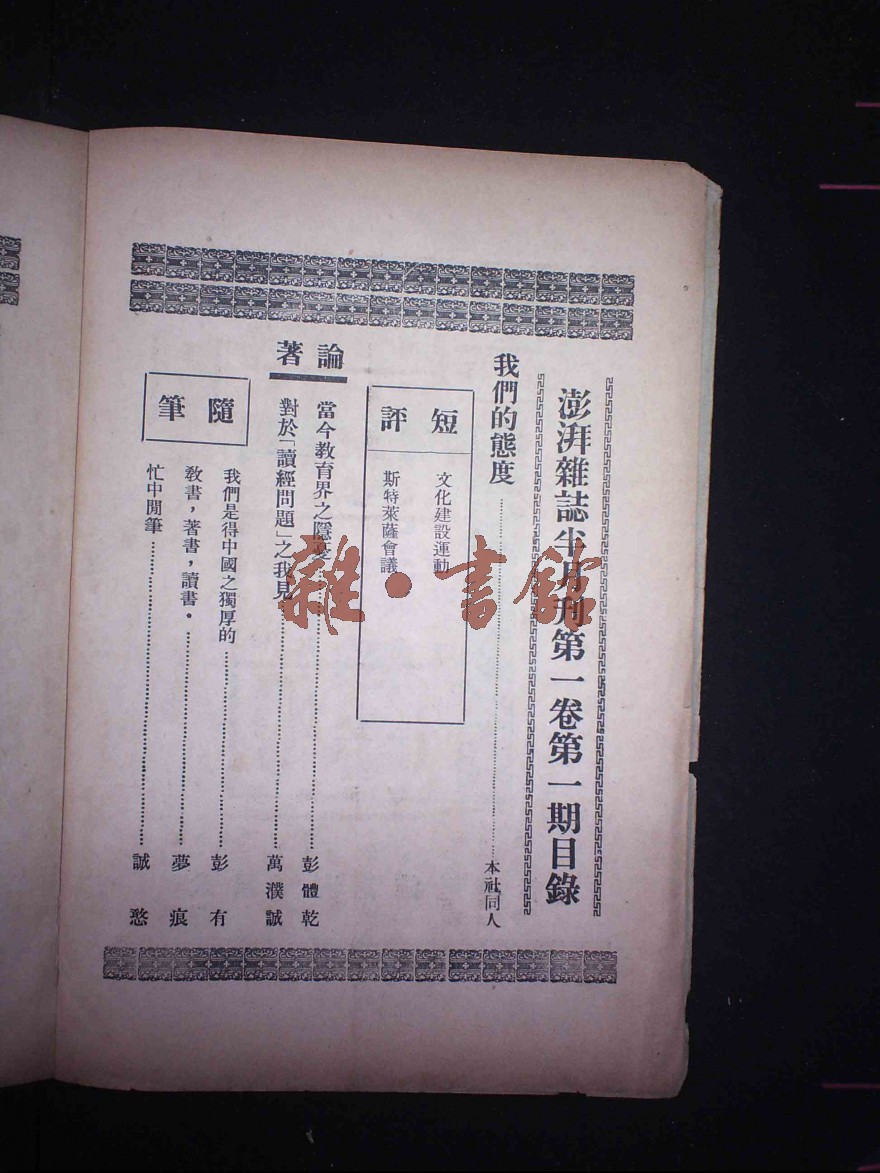 澎湃雜誌半月刊第一卷第一期目錄
我們的態度……本社同人
短評
文化建設運動
斯特萊薩會議
論著
當今教育界之隱憂……彭體乾
對於「讀經問題」之我見……萬濮誠
隨筆
我們是得中國之獨厚的……彭有
教書，著書，讀書。……夢痕
忙中閒筆……誠愁
雜·書館